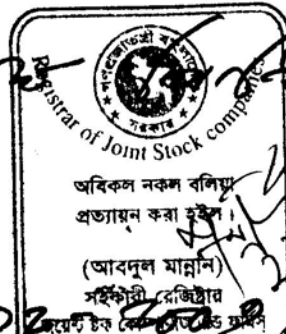 গণপ্রজাতন্ত্রী বাংলাদেশ
সরকার
Registrar of Joint Stock companies
অবিকল নকল বলিয়া
প্রত্যায়ন করা হইল।
(আবদুল মান্নান)
সহকারী রেজিষ্ট্রার
জয়েন্ট ষ্টক